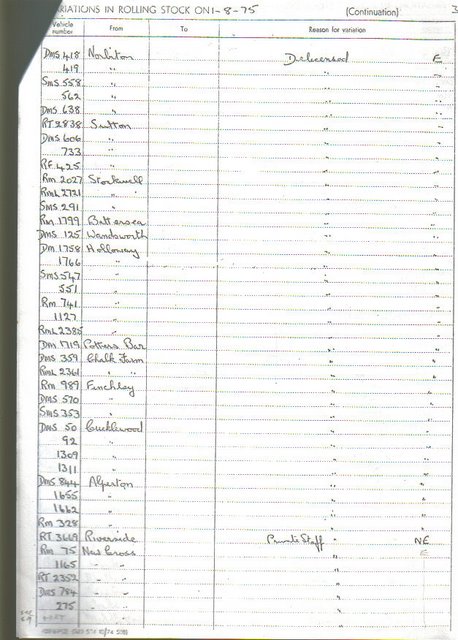 VARIATIONS IN ROLLING STOCK ON 1-8-75 (Continuation) 3
Vehicle number From To Reason for variation
DMS 418 Norbiton Delicensed E
419 " " "
SMS 558 " " "
562 " " "
DMS 638 " " "
RT 2838 Sutton " "
DMS 606 " " "
733 " " "
RF 425 " " "
RM 2027 Stockwell " "
RML 2721 " " "
SMS 291 " " "
RM 1799 Battersea " "
DMS 125 Wandsworth " "
DM 1758 Holloway " "
1766 " " "
SMS 547 " " "
551 " " "
RM 741 " " "
1127 " " "
RML 2385 " " "
DM 1719 Potters Bar " "
DMS 359 Chalk Farm " "
RML 2361 " " " "
RM 989 Finchley " "
DMS 570 " " "
SMS 353 " " "
DMS 50 Cricklewood " "
92 " " "
1309 " " "
1311 " " "
DMS 844 Alperton " "
1655 " " "
1662 " " "
RM 328 " " "
RT 3669 Riverside Private Staff " NE
RM 75 New Cross " E
1165 " " " "
RT 2352 " " " "
DMS 784 " " " "
275 " " " "